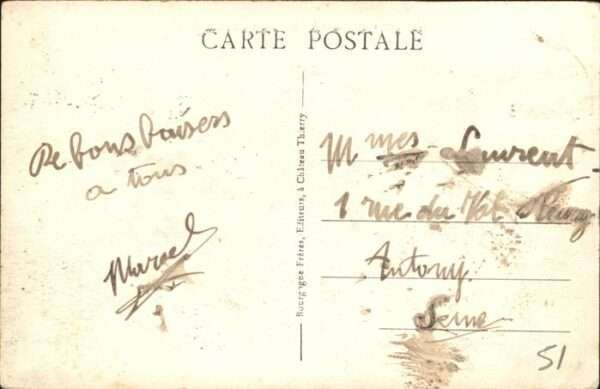 CARTE POSTALE
De bons baisers
a tous
Marcel
Bourgogne Frères, Editeurs, à Château Thierry
M mes Laurent
1 rue du Val
Antony
Seine
51